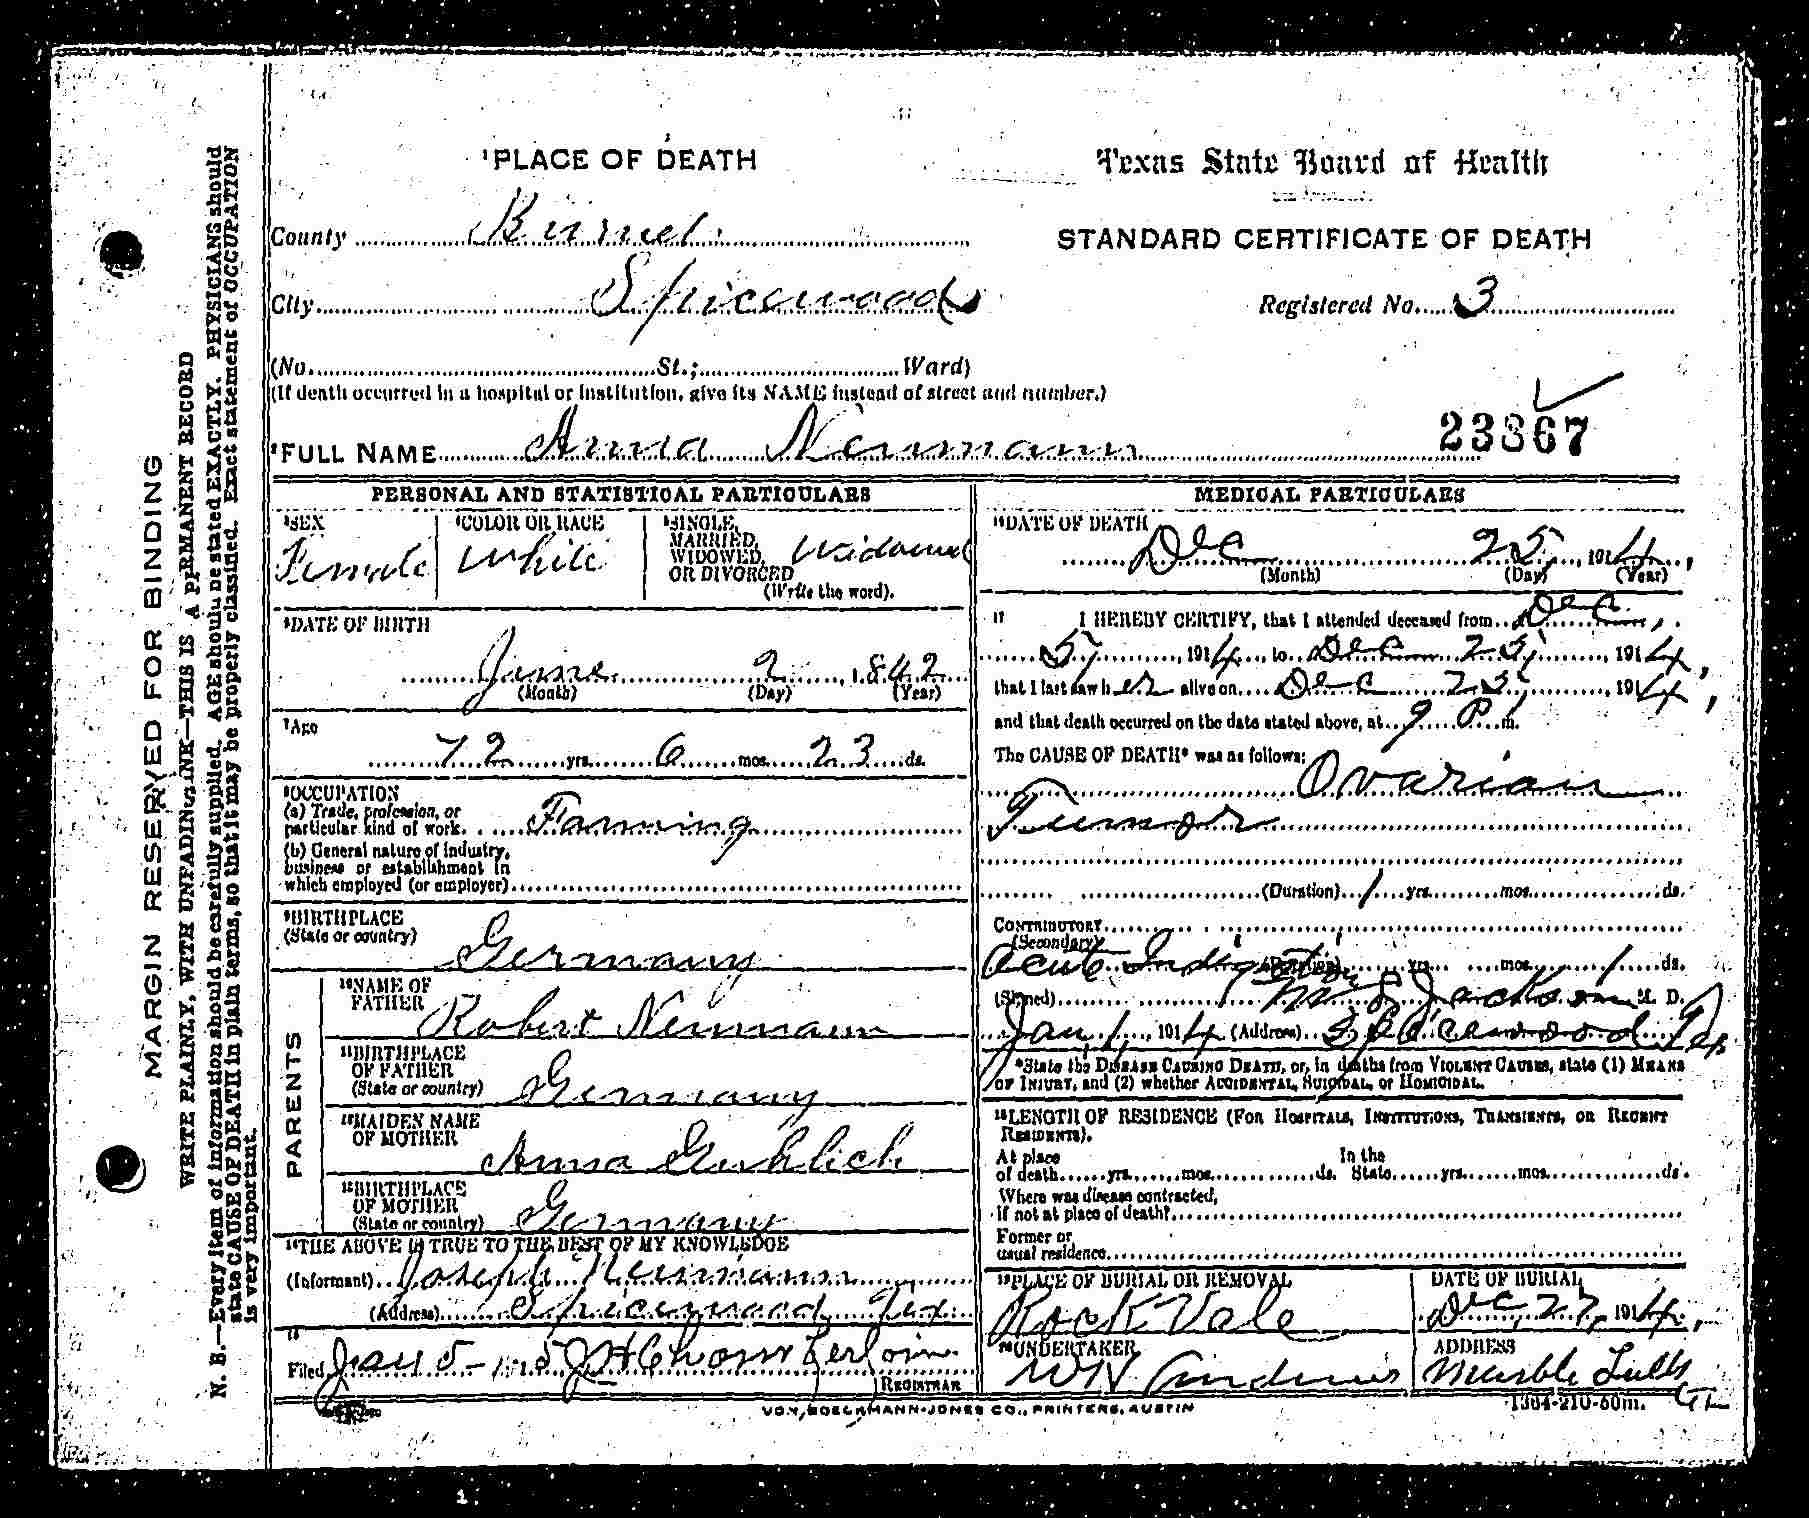 MARGIN RESERVED FOR BINDING
WRITE PLAINLY, WITH UNFADING INK—THIS IS A PERMANENT RECORD
N. B.—Every item of information should be carefully supplied. AGE should be stated EXACTLY. PHYSICIANS should
state CAUSE OF DEATH in plain terms, so that it may be properly classified. Exact statement of OCCUPATION
is very important.
1 PLACE OF DEATH
Texas State Board of Health
County Burnet
STANDARD CERTIFICATE OF DEATH
City Spicewood
Registered No. 3
(No. St.; Ward)
(If death occurred in a hospital or institution, give its NAME instead of street and number.)
23867
2 FULL NAME Anna Neumann
PERSONAL AND STATISTICAL PARTICULARS
3 SEX
Female
4 COLOR OR RACE
White
5 SINGLE,
MARRIED,
WIDOWED,
OR DIVORCED
(Write the word).
Widowed
6 DATE OF BIRTH
June 2, 1842
(Month) (Day) (Year)
7 Age
72 yrs. 6 mos. 23 ds.
8 OCCUPATION
(a) Trade, profession, or
particular kind of work. Farming
(b) General nature of industry,
business or establishment in
which employed (or employer)
9 BIRTHPLACE
(State or country)
Germany
PARENTS
10 NAME OF
FATHER
Robert Neumann
11 BIRTHPLACE
OF FATHER
(State or country)
Germany
12 MAIDEN NAME
OF MOTHER
Anna
13 BIRTHPLACE
OF MOTHER
(State or country)
Germany
14 THE ABOVE IS TRUE TO THE BEST OF MY KNOWLEDGE
(Informant) Joseph Neumann
(Address) Spicewood Tex
15
Filed Jan 5 - 1915 J H
REGISTRAR
MEDICAL PARTICULARS
16 DATE OF DEATH
Dec 25, 1914,
(Month) (Day) (Year)
17 I HEREBY CERTIFY, that I attended deceased from Dec,
5, 1914, to Dec 25, 1914,
that I last saw her alive on Dec 25, 1914,
and that death occurred on the date stated above, at 9 P.m.
The CAUSE OF DEATH* was as follows:
Ovarian
Tumor
(Duration) 1 yrs. mos. ds.
CONTRIBUTORY
(Secondary)
Acute Indigestion (Duration) yrs. mos. 1 ds.
(Signed) Jackson M. D.
Jan 1, 1914 (Address) Spicewood Tex
*State the DISEASE CAUSING DEATH, or, in deaths from VIOLENT CAUSES, state (1) MEANS
OF INJURY, and (2) whether ACCIDENTAL, SUICIDAL, or HOMICIDAL.
18 LENGTH OF RESIDENCE (FOR HOSPITALS, INSTITUTIONS, TRANSIENTS, OR RECENT
RESIDENTS).
At place
of death yrs. mos. ds.
In the
State yrs. mos. ds.
Where was disease contracted,
if not at place of death?
Former or
usual residence
19 PLACE OF BURIAL OR REMOVAL
Rock Vale
DATE OF BURIAL
Dec, 27, 1914,
20 UNDERTAKER
ADDRESS
Marble Falls
VON BOECKMANN-JONES CO., PRINTERS, AUSTIN
1364-210-50m.